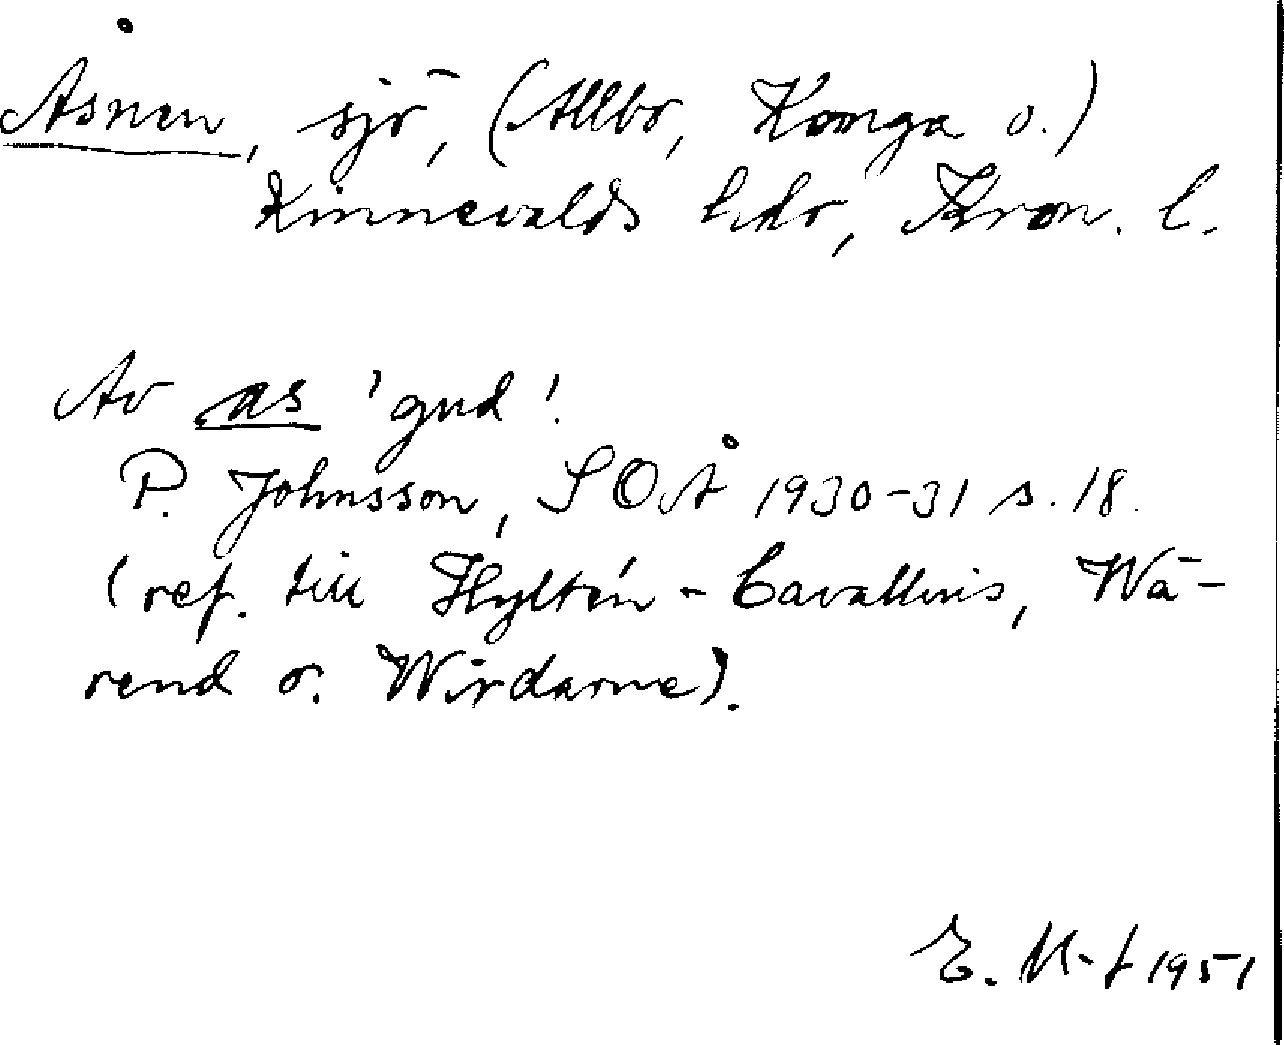 Åsnen, sjö, (Allbo, Konga o.)
Kinnevalds hdr, Kron. l.
Av as 'gud'.
P. Johnsson, SOÅ 1930-31 s. 18.
(ref. till Hyltén-Cavallius, Wä-
rend o. Wirdarne).
E. 1951